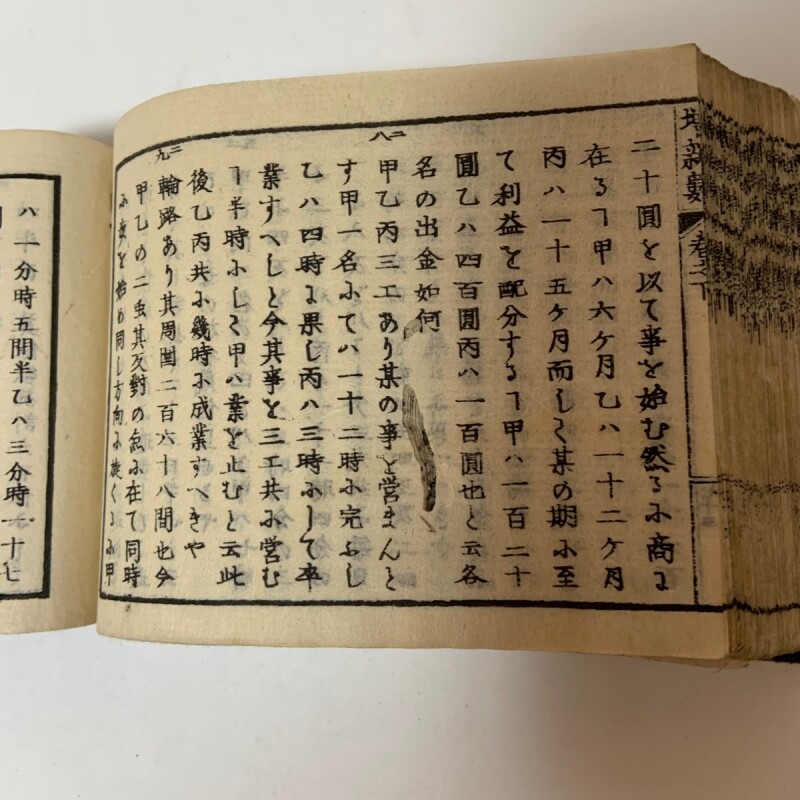 卷之下
二十圓を以て事を始む然るに商に
在るヿ甲ハ六ケ月乙ハ一十二ケ月
丙ハ一十五ケ月而して某の期に至
て利益を配分するヿ甲ハ一百二十
圓乙ハ四百圓丙ハ一百圓也と云各
名の出金如何
二八
甲乙丙三工あり某の事を営まんと
す甲一名にてハ一十二時に完ふし
乙ハ四時に果し丙ハ三時にして卒
業すへしと今其事を三工共に営む
ヿ半時にして甲ハ業を止むと云此
後乙丙共に幾時に成業すへきや
二九
輪路あり其周囲二百六十八間也今
甲乙の二虫其反對の点に在て同時
に歩を始め同し方向に旋くるに甲
ハ一分時五間半乙ハ三分時一十七